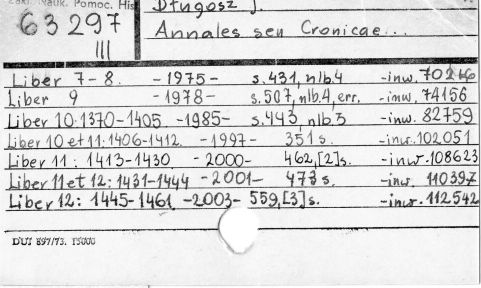 Zakł. Nauk. Pomoc. Hist
Długosz J.
63297
III
Annales seu Cronicae...
Liber 7-8. -1975- s.431, nlb.4 -inw.
Liber 9 -1978- s.507, nlb.4, err. -inw. 74156
Liber 10.1370-1405 -1985- s.443, nlb.5 -inw. 82759
Liber 10 et 11: 1406-1412. -1997- 351 s. -inw. 102051
Liber 11: 1413-1430 -2000- 462,[2]s. -inw. 108623
Liber 11 et 12: 1431-1444 -2001- 473 s. -inw. 110397
Liber 12: 1445-1461 -2003- 559,[3]s. -inw. 112542
DUJ 897/73. 15000